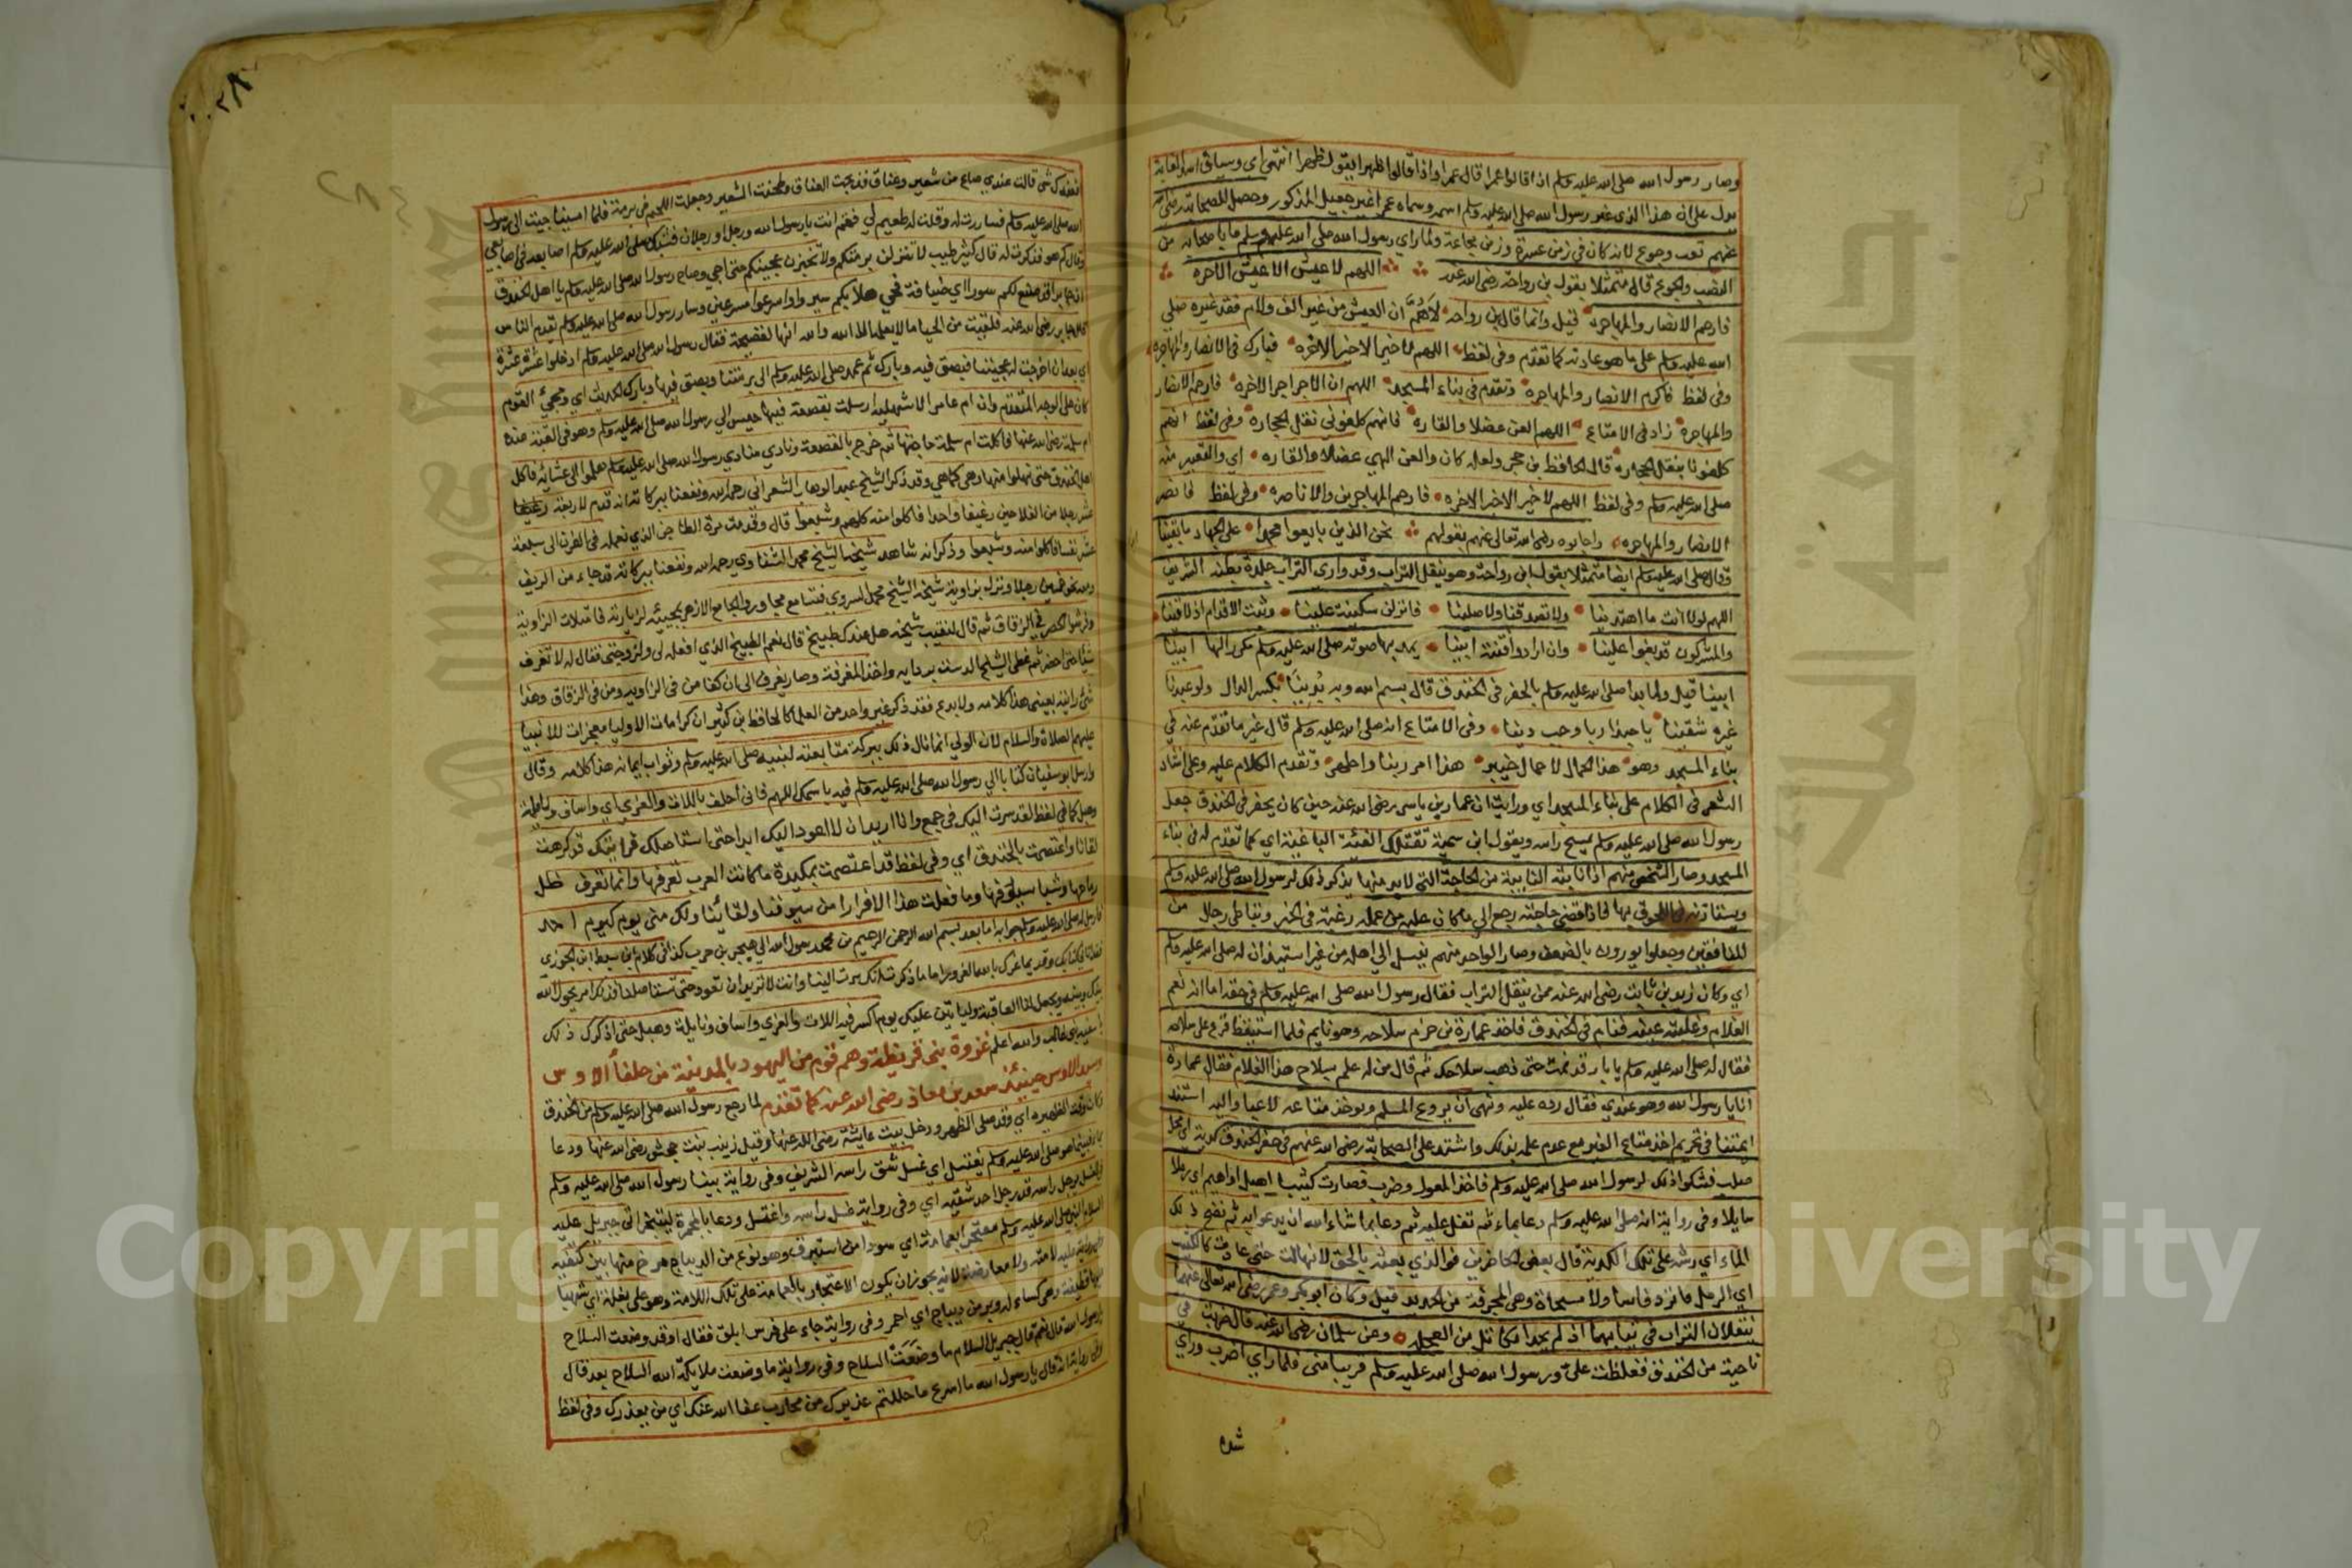 وصار رسول الله صلى الله عليه وسلم اذا قالوا عمرا قال عمرا واذا قالوا ظهرا يقول ظهرا انتهى اي وسياق
يدل على ان هذا الذي غير رسول الله صلى الله عليه وسلم اسمه وسماه عمرا غير جعيل المذكور وحصل للصحابة رضي الله
عنهم تعب وجوع لانه كان في زمن عسرة وزمن مجاعة ولما راي رسول الله صلى الله عليه وسلم ما باصحابه من
النصب والجوع قال متمثلا بقول بن رواحة رضي الله عنه اللهم لا عيش الا عيش الاخره
فارحم الانصار والمهاجره قيل وانما قال بن رواحه لاهُمَّ ان العيش من غير الف ولام فقد غيره صلى
الله عليه وسلم على ما هو عادته كما تقدم وفي لفظ اللهم لا خير الا خير الاخره فبارك في الانصار والمهاجره
وفي لفظ فاكرم الانصار والمهاجره وتقدم في بناء المسجد اللهم ان الاجر اجر الاخره فارحم الانصار
والمهاجره زاد في الامتاع اللهم العن عضلا والقاره فانهم كلفوني نقل الحجاره وفي لفظ انهم
كلفونا بنقل الحجاره قال الحافظ بن حجر ولعله كان والعن الهي عضلا والقاره اي والتغيير منه
صلى الله عليه وسلم وفي لفظ اللهم لا خير الا خير الاخره فارحم المهاجرين والاناصره وفي لفظ فانصر
الانصار والمهاجره واجابوه رضي الله تعالى عنهم بقولهم نحن الذين بايعوا محمدا على الجهاد ما بقينا
وقال صلى الله عليه وسلم ايضا متمثلا بقول ابن رواحة وهو ينقل التراب وقد وارى التراب جلدة بطنه الشريف
اللهم لولا انت ما اهتدينا ولا تصدقنا ولا صلينا فانزلن سكينة علينا وثبت الاقدام ان لاقينا
والمشركون قد بغوا علينا وان ارادوا فتنة ابينا يمد بها صوته صلى الله عليه وسلم مكررا لها ابينا
ابينا قيل ولما بدا صلى الله عليه وسلم بالحفر في الخندق قال بسم الله وبه بُدِينَا بكسر الدال ولو عبدنا
غيره شقينا يا حبذا ربا وحب دينا وفي الامتاع انه صلى الله عليه وسلم قال غير ما تقدم عنه في
بناء المسجد وهو هذا الحمال لا حمال خيبر هذا امر ربنا واطهر وتقدم الكلام عليه وعلى انشاد
الشعر في الكلام على بناء المسجد اي ورايت ان عمار بن ياسر رضي الله عنه حين كان يحفر في الخندق جعل
رسول الله صلى الله عليه وسلم يمسح راسه ويقول ابن سمية تقتلك الفئة الباغية اي كما تقدم له في بناء
المسجد وصار الشخص منهم اذا نابته النايبة من الحاجة التي لا بد منها يذكر ذلك لرسول الله صلى الله عليه وسلم
ويستاذنه في اللحوق بها فاذا قضى حاجته رجع الى ما كان عليه من عمله رغبة في الخير وتباطى رجال من
المنافقين وجعلوا يورون بالضعف وصار الواحد منهم ينسل الى اهله من غير استيذان له صلى الله عليه وسلم
اي وكان زيد بن ثابت رضي الله عنه ممن ينقل التراب فقال رسول الله صلى الله عليه وسلم في حقه اما انه نعم
الغلام وغلبته عينه فنام في الخندق فاخذ عمارة بن حزم سلاحه وهو نايم فلما استيقظ فزع على سلاحه
فقال له صلى الله عليه وسلم يا با رقد نمت حتى ذهب سلاحك ثم قال من له علم بسلاح هذا الغلام فقال عمارة
انا يا رسول الله وهو عندي فقال رده عليه ونهى ان يروع المسلم ويوخذ متاعه لاعبا واليه استند
ايمتنا في تحريم اخذ متاع الغير مع عدم علمه بذلك واشتد على الصحابة رضي الله عنهم في حفر الخندق كدية اي محل
صلب فشكوا ذلك لرسول الله صلى الله عليه وسلم فاخذ المعول وضرب فصارت كثيبا اهيل او اهيم اي رملا
سايلا وفي رواية انه صلى الله عليه وسلم دعا بماء ثم تفل عليه ثم دعا بما شاء الله ان يدعو به ثم نضح ذلك
الماء اي رشه على تلك الكدية قال بعض الحاضرين فوالذي بعثه بالحق لانهالت حتى عادت كالكثيب
اي الرمل ما ترد فاسا ولا مسحاة وهي المجرفة من الحديد قيل وكان ابو بكر وعمر رضي الله تعالى عنهما
ينقلان التراب في ثيابهما اذ لم يجدا مكاتل من العجله وعن سلمان رضي الله عنه قال ضربت في
ناحية من الخندق فغلظت عليّ ورسول الله صلى الله عليه وسلم قريبا مني فلما راي اضرب وراي
شده
عندي صاع من شعير وعناق فذبحت العناق وطحنت الشعير وجعلت اللحم في برمة فلما امسينا جيت الى رسول
الله صلى الله عليه وسلم فساررته وقلت له طعيم لي فقم انت يا رسول الله ورجل او رجلان فشبك صلى الله عليه وسلم اصابعه في اصابعي
وقال كم هو فذكرت له قال كثير طيب لا تنزلن برمتكم ولا تخبزن عجينكم حتى اجي وصاح رسول الله صلى الله عليه وسلم يا اهل الخندق
ان جابرا قد صنع لكم سورا اي ضيافة فحي هلا بكم سيروا مسرعين وسار رسول الله صلى الله عليه وسلم يقدم الناس
قال جابر رضي الله عنه فلقيت من الحيا ما لا يعلمه الا الله والله انها لفضيحة فقال رسول الله صلى الله عليه وسلم ادخلوا عشرة عشرة
اي بعد ان اخرجت له عجيننا فبصق فيه وبارك ثم عمد صلى الله عليه وسلم الى برمتنا وبصق فيها وبارك الحديث اي ومجيء القوم
كان على الوجه المتقدم وان ام عامر الاشهلية ارسلت بقصعة فيها حيس الى رسول الله صلى الله عليه وسلم وهو في القبة عند
ام سلمة رضي الله عنها فاكلت ام سلمة حاجتها ثم خرج بالقصعة ونادي منادي رسول الله صلى الله عليه وسلم هلموا الى عشائه فاكل
اهل الخندق حتى نهلوا منها وهي كما هي وقد ذكر الشيخ عبد الوهاب الشعراني رحمه الله ونفعنا ببركاته انه قدم لاربعة
عشر رجلا من الفلاحين رغيفا واحدا فاكلوا منه كلهم وشبعوا قال وقدمت مرة الطاجن الذي نعمله في الفرن الى سبعة
عشر نفسا فاكلوا منه وشبعوا وذكر انه شاهد شيخه الشيخ محمد الشناوي رحمه الله ونفعنا ببركاته قد جاء من الريف
ومعه نحو خمسين رجلا ونزل بزاوية شيخه الشيخ محمد السروي فتسامع مجاوروا الجامع الازهر بمجيئه لزيارته فامتلات الزاوية
وفرشوا الحصر في الزقاق ثم قال لنقيب شيخه هل عندك طبيخ قال نعم الطبيخ الذي افعله لي ولزوجتي فقال له لا تغرف
شيئا حتى احضر ثم غطى الشيخ الدست بردايه واخذ المغرفة وصار يغرف الى ان كفا من في الزاوية ومن في الزقاق وهذا
شي رايته بعيني هذا كلامه ولا بدع فقد ذكر غير واحد من العلما كالحافظ بن كثير ان كرامات الاوليا معجزات للانبيا
عليهم الصلاة والسلام لان الولي انما نال ذلك ببركة متابعته لنبيه صلى الله عليه وسلم وثواب ايمانه هذا كلامه وقال
وارسل ابو سفيان كتابا الى رسول الله صلى الله عليه وسلم فيه باسمك اللهم فاني احلف باللات والعزى اي واساف ونايلة
وهبل كما في لفظ لقد سرت اليك في جمع وانا اريد ان لا اعود اليك ابدا حتى استاصلك فرايتك قد كرهت
لقانا واعتصمت بالخندق اي وفي لفظ قد اعتصمت بمكيدة ما كانت العرب تعرفها وانما تعرف ظل
رماحها وشبا سيوفها وما فعلت هذا الا فرارا من سيوفنا ولقائنا ولك مني يوم كيوم احد
فارسل له صلى الله عليه وسلم جوابه اما بعد بسم الله الرحمن الرحيم من محمد رسول الله الى صخر بن حرب كذا في كلام سبط ابن الجوزي
فقد اتانا كتابك وقديما غرك بالله الغرور اما ما ذكرت انك سرت الينا وانت لا تريد ان تعود حتى تستاصلنا فذلك امر يحول الله
بينك وبينه ويجعل لنا العاقبة ولياتين عليك يوم اكسر فيه اللات والعزى واساف ونايلة وهبل حتى اذكرك ذلك
يا سفيه بني غالب والله اعلم غزوة بني قريظة وهم قوم من اليهود بالمدينة من حلفأ الاوس
وسيد الاوس حينئذ سعد بن معاذ رضي الله عنه كما تقدم لما رجع رسول الله صلى الله عليه وسلم من الخندق
كان وقت الظهيرة اي وقد صلى الظهر ودخل بيت عايشة رضي الله عنها وقيل زينب بنت جحش رضي الله عنها ودعا
بماء فبينما هو صلى الله عليه وسلم يغتسل اي غسل شق راسه الشريف وفي رواية بينا رسول الله صلى الله عليه وسلم
في المغتسل يرجل راسه قد رجل احد شقيه اي وفي رواية غسل راسه واغتسل ودعا بالمجمرة ليتبخر اتى جبريل عليه
السلام النبي صلى الله عليه وسلم معتجرا بعمامة اي سودا من استبرق وهو نوع من الديباج مرخ منها بين كتفيه
عليه لامته ولا معارضة لانه يجوز ان يكون الاعتجار بالعمامة على تلك اللامة وهو على بغلة اي شهبا
عليها قطيفة وهي كساء له وبر من ديباج اي احمر وفي رواية جاء على فرس ابلق فقال اوقد وضعت السلاح
يا رسول الله قال نعم قال جبريل السلام ما وضَعَتْ السلاح وفي رواية ما وضعت ملايكة الله السلاح بعد قال
وفي رواية انه قال يا رسول الله ما اسرع ما حللتم عذيرك من محارب عفا الله عنك اي من يعذرك وفي لفظ
Copyright © King Saud University